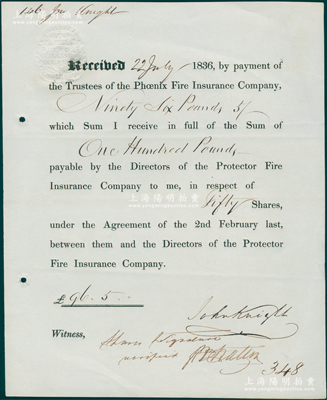 上海陽明拍賣
Jno Knight
Received 22 July 1836, by payment of
the Trustees of the Phœnix Fire Insurance Company,
Ninety Six Pounds 5/
which Sum I receive in full of the Sum of
One Hundred Pounds
payable by the Directors of the Protector Fire
Insurance Company to me, in respect of
Fifty Shares,
under the Agreement of the 2nd February last,
between them and the Directors of the Protector
Fire Insurance Company.
£96.5
John Knight
Witness,
Shares & Signature
verified
348
上海陽明拍賣